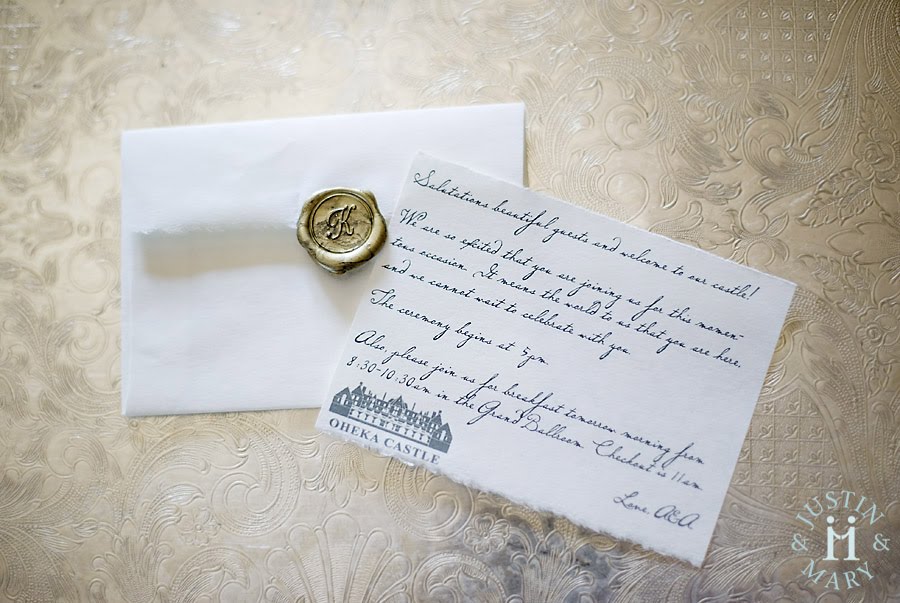 K
Salutations beautiful guests and welcome to our castle!
We are so excited that you are joining us for this momen-
tous occasion. It means the world to us that you are here,
and we cannot wait to celebrate with you.
The ceremony begins at 5pm.
Also, please join us for breakfast tomorrow morning from
8:30-10:30am in the Grand Ballroom. Checkout is 11am.
Love, A&A
OHEKA CASTLE
JUSTIN
& &
MARY